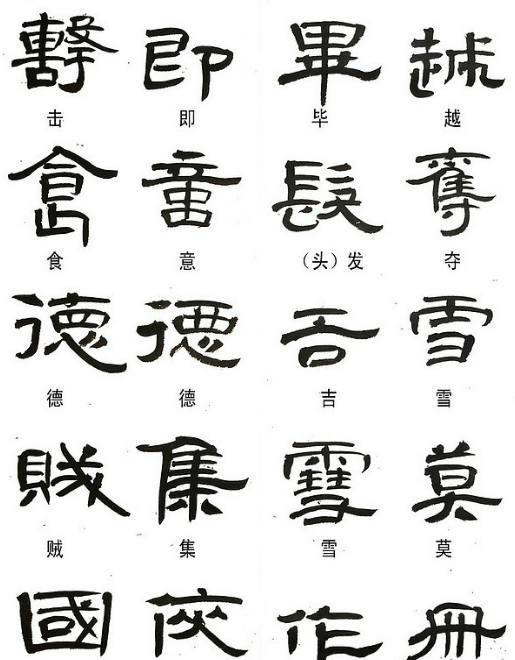 擊 即 畢 越
击 即 毕 越
食 意 髮 奪
食 意 （头）发 夺
德 德 吉 雪
德 德 吉 雪
賊 集 雪 莫
贼 集 雪 莫
國 俠 作 冊